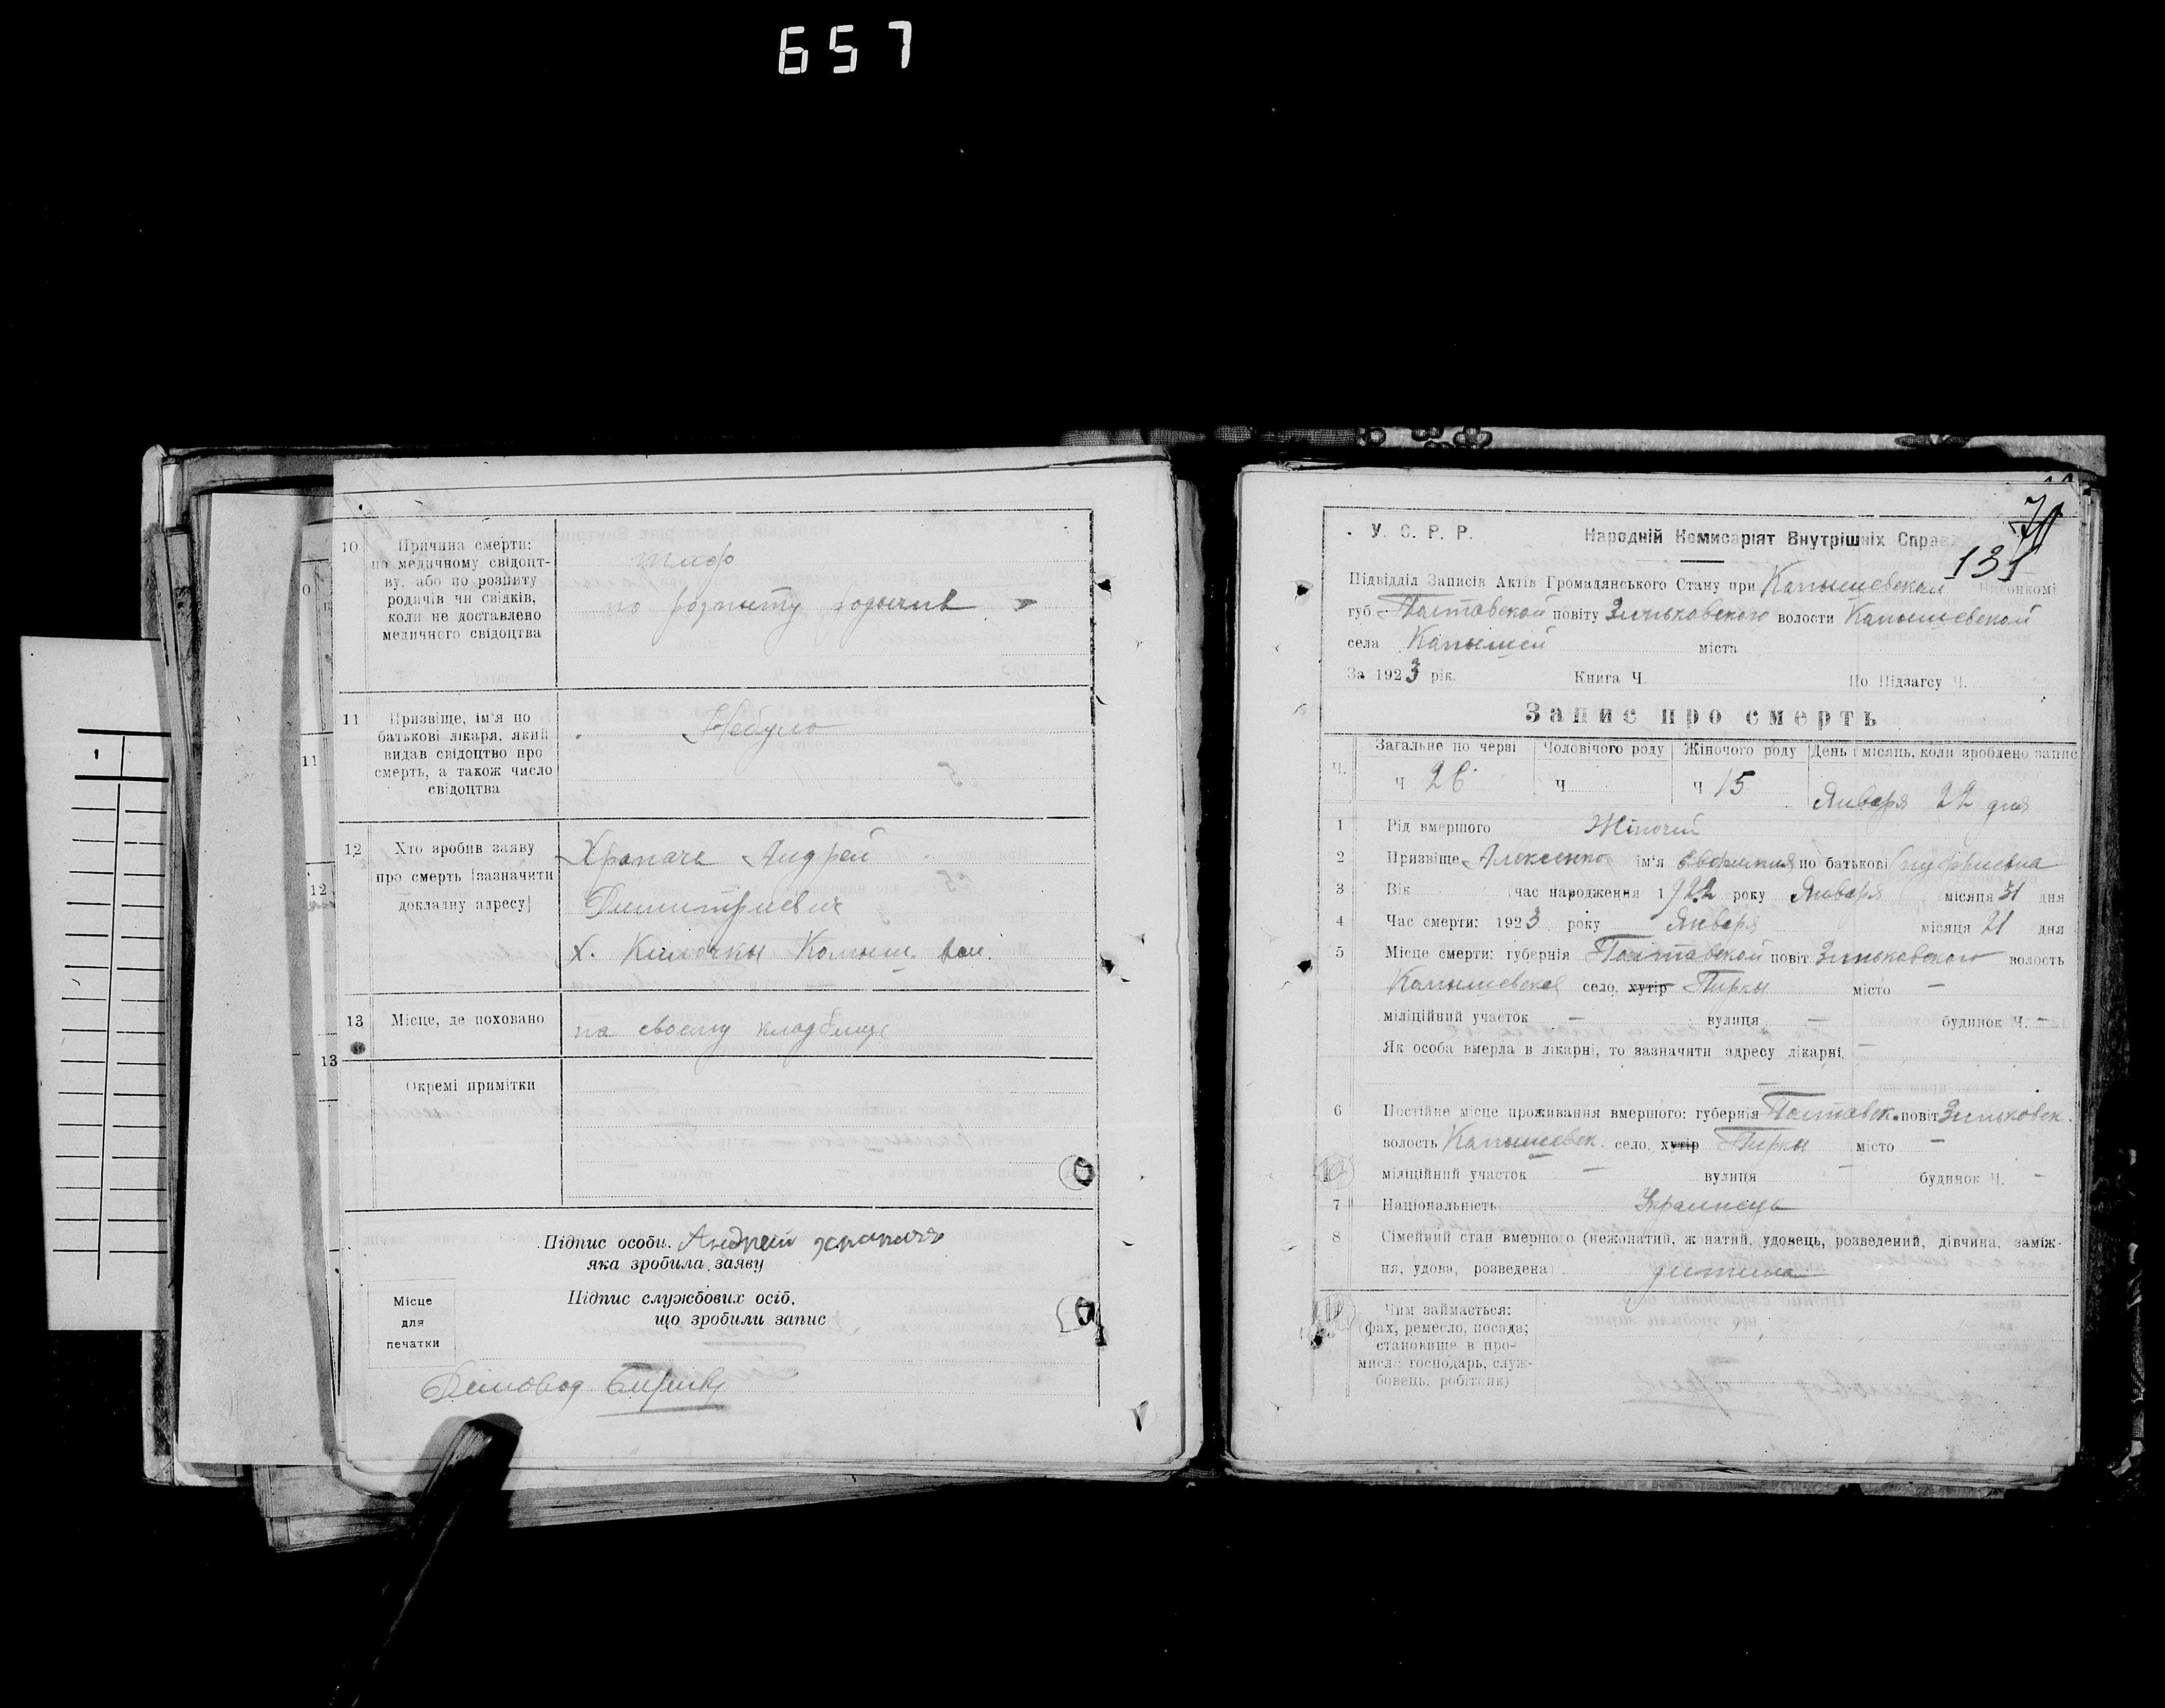 657
10 Причина смерти:
по медичному свідоцт-
ву, або по розпиту
родичів чи свідків,
коли не доставлено
медичного свідоцтва
тиф
по розпиту родычив
11 Призвіще, ім'я по
батькові лікаря, який
видав свідоцтво про
смерть, а також число
свідоцтва
Небуло
12 Хто зробив заяву
про смерть (зазначити
докладну адресу)
Храпаче Андрей
Димитриевич
х. Килочкы Комыш. вол.
13 Місце, де поховано
на своему кладбище
Окремі примітки
Підпис особи. Андрей храпаче
яка зробила заяву
Підпис службових осіб,
що зробили запис
Місце
для
печатки
Діловод
0
11
12
13
1
71
131
У. С. Р. Р. Народній Комисаріят Внутрішніх Справ
Підвідділ Записів Актів Громадянського Стану при Комышевской Виконкомі
губ Полтавской повіту Зиньковского волости Комышевской
села Комышей міста
За 1923 рік. Книга Ч. По Підзагсу Ч.
Запис про смерть
Ч. Загальне по черзі Чоловічого роду Жіночого роду День і місяць, коли зроблено запис
Ч 26 Ч Ч 15 Января 22 дня
1 Рід вмершого Жіночий
2 Призвіще Алексенко ім'я Евфимия по батькові Онуфриевна
3 Вік час народження 1922 року Января місяця 31 дня
4 Час смерти: 1923 року Января місяця 21 дня
5 Місце смерти: губернія Полтавской повіт Зиньковского волость
Комышевской село, хутір Пиркы місто –
міліційний участок – вулиця – будинок Ч. –
Як особа вмерла в лікарні, то зазначити адресу лікарні –
–
6 Постійне місце проживання вмершого: губернія Полтавск. повіт Зиньковск.
волость Комышевск. село, хутір Пиркы місто –
міліційний участок – вулиця – будинок Ч. –
7 Національність Украинець
8 Сімейний стан вмершого (нежонатий, жонатий, удовець, розведений, дівчина, заміж-
ня, удова, розведена) дитина
Чим займається:
(фах, ремесло, посада;
становище в про-
мислі: господарь, служ-
бовець, робітник)